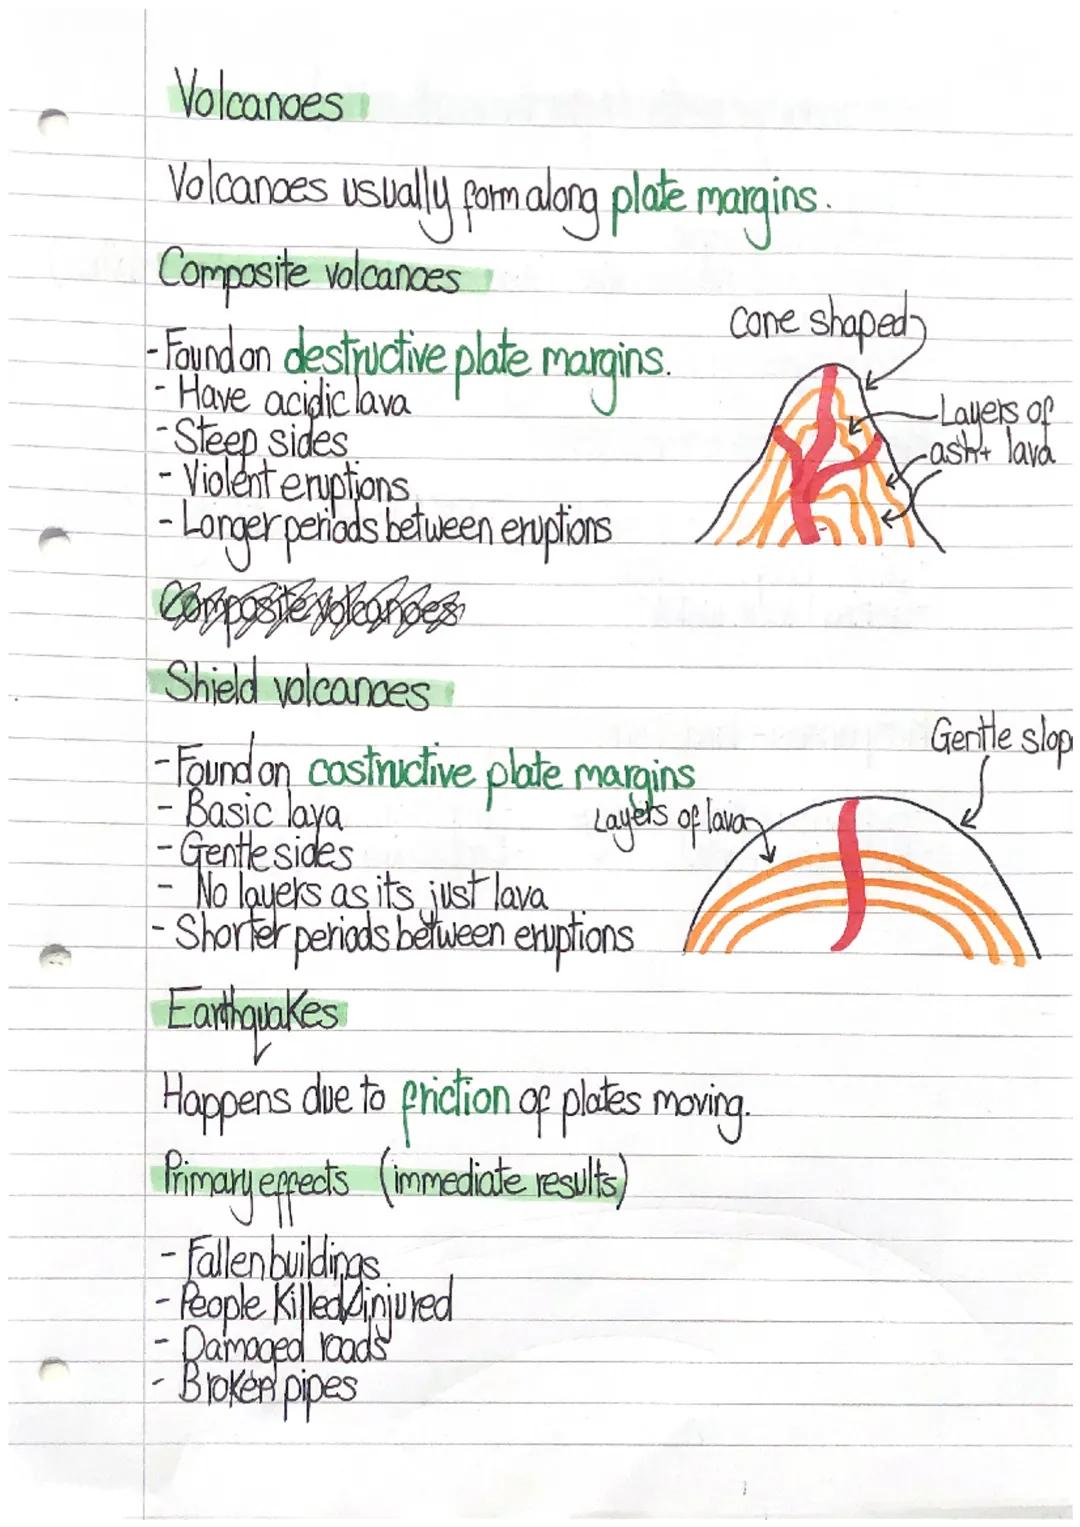 Volcanoes
Volcanoes usually form along plate margins.
Composite volcanoes
- Found on destructive plate margins.
- Have acidic lava
- Steep sides
- Violent eruptions
- Longer periods between eruptions
cone shaped
Layers of
ash + lava
Composite volcanoes
Shield volcanoes
- Found on costructive plate margins
- Basic lava
- Gentle sides
- No layers as its just lava
- Shorter periods between eruptions
Gentle slop
Layers of lava
Earthquakes
Happens due to friction of plates moving.
Primary effects (immediate results)
- Fallen buildings
- People killed/injured
- Damaged roads
- Broken pipes